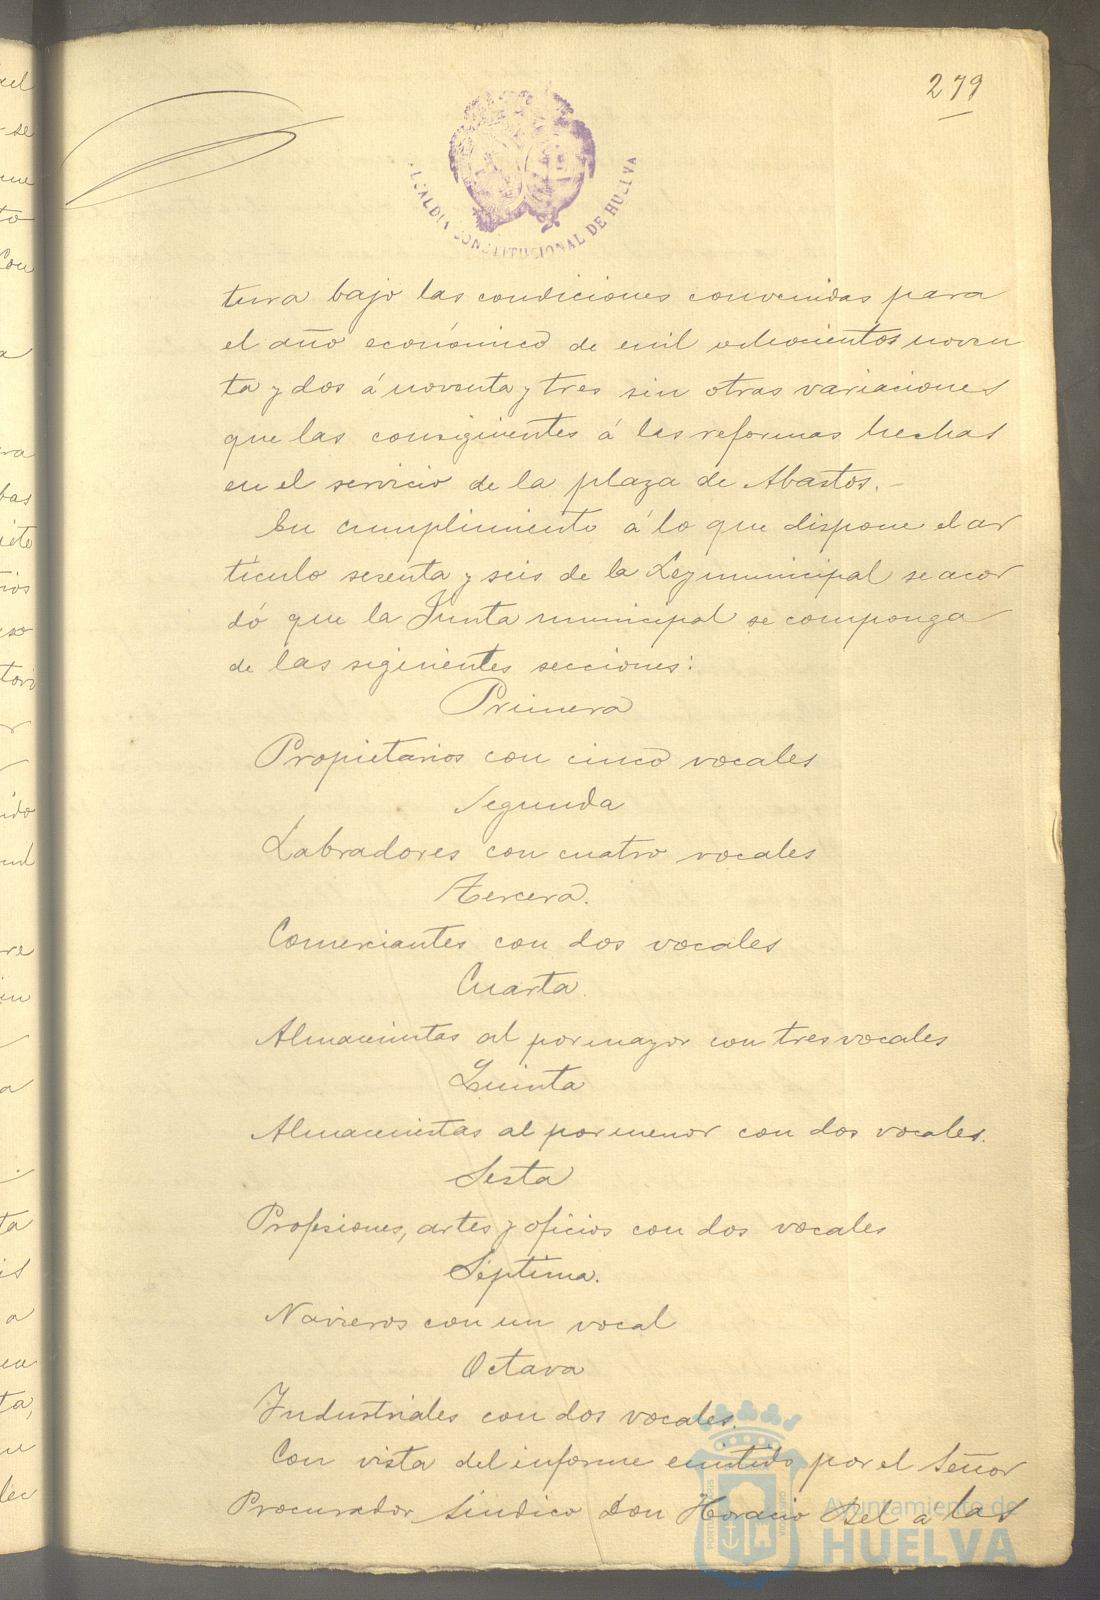 279
ALCALDIA CONSTITUCIONAL DE HUELVA
tura bajo las condiciones convenidas para
el año económico de mil ochocientos noven
ta y dos á noventa y tres sin otras variaciones
que las consiguientes á las reformas hechas
en el servicio de la plaza de Abastos.
En cumplimiento á lo que dispone el ar
tículo sesenta y seis de la Ley municipal se acor
dó que la Junta municipal se componga
de las siguientes secciones:
Primera
Propietarios con cinco vocales
Segunda
Labradores con cuatro vocales
Tercera.
Comerciantes con dos vocales
Cuarta
Almacenistas al por mayor con tres vocales
Quinta
Almacenistas al por menor con dos vocales.
Sesta
Profesiones, artes y oficios con dos vocales
Séptima.
Navieros con un vocal
Octava
Industriales con dos vocales.
Con vista del informe emitido por el Señor
Procurador Síndico Don Horacio Bel a las
Ayuntamiento de
HUELVA